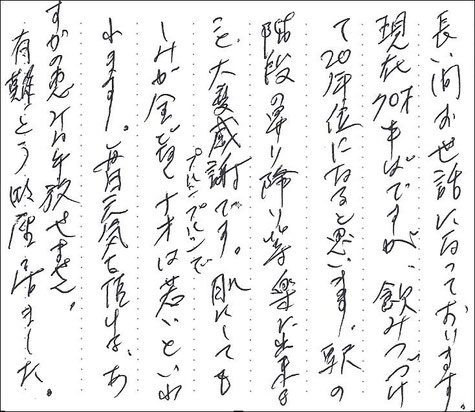 長い間お世話になっております。
現在70才半ばですが、飲みつづけ
て20年位になると思います。駅の
階段の昇り降り等楽に出来る
こと、大変感謝です。肌にしても
プルンプルンで
しみが全然なく十才は若いといわ
れます。毎日元気も信生は、あ
すかの恵みは手放せません。
有難とう御座居ました。